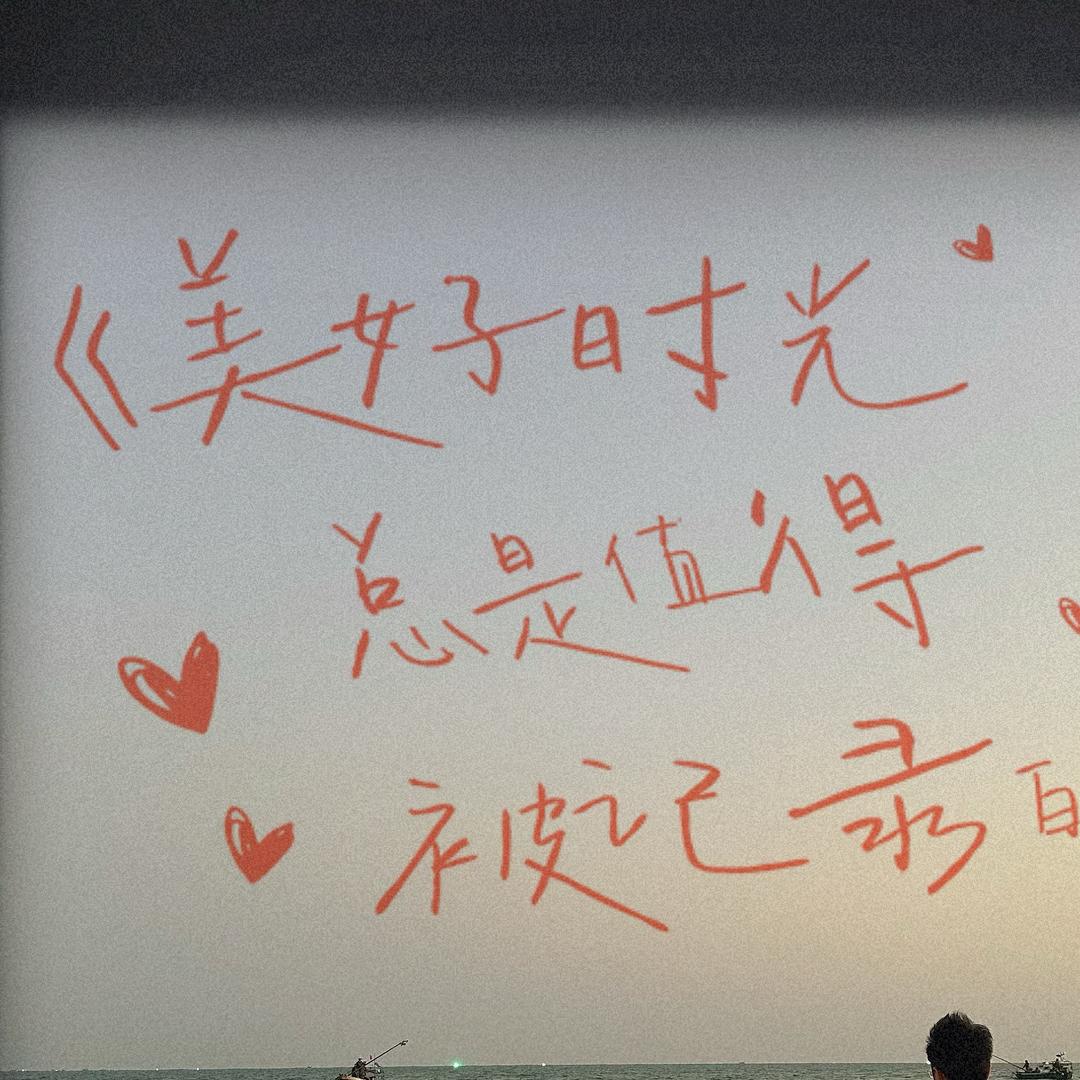 《美好时光
总是值得
被记录